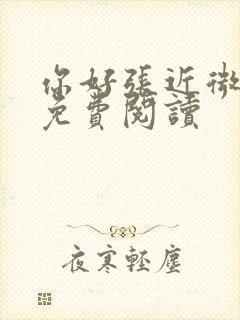 你好張近微
免費閱讀
夜寒輕塵